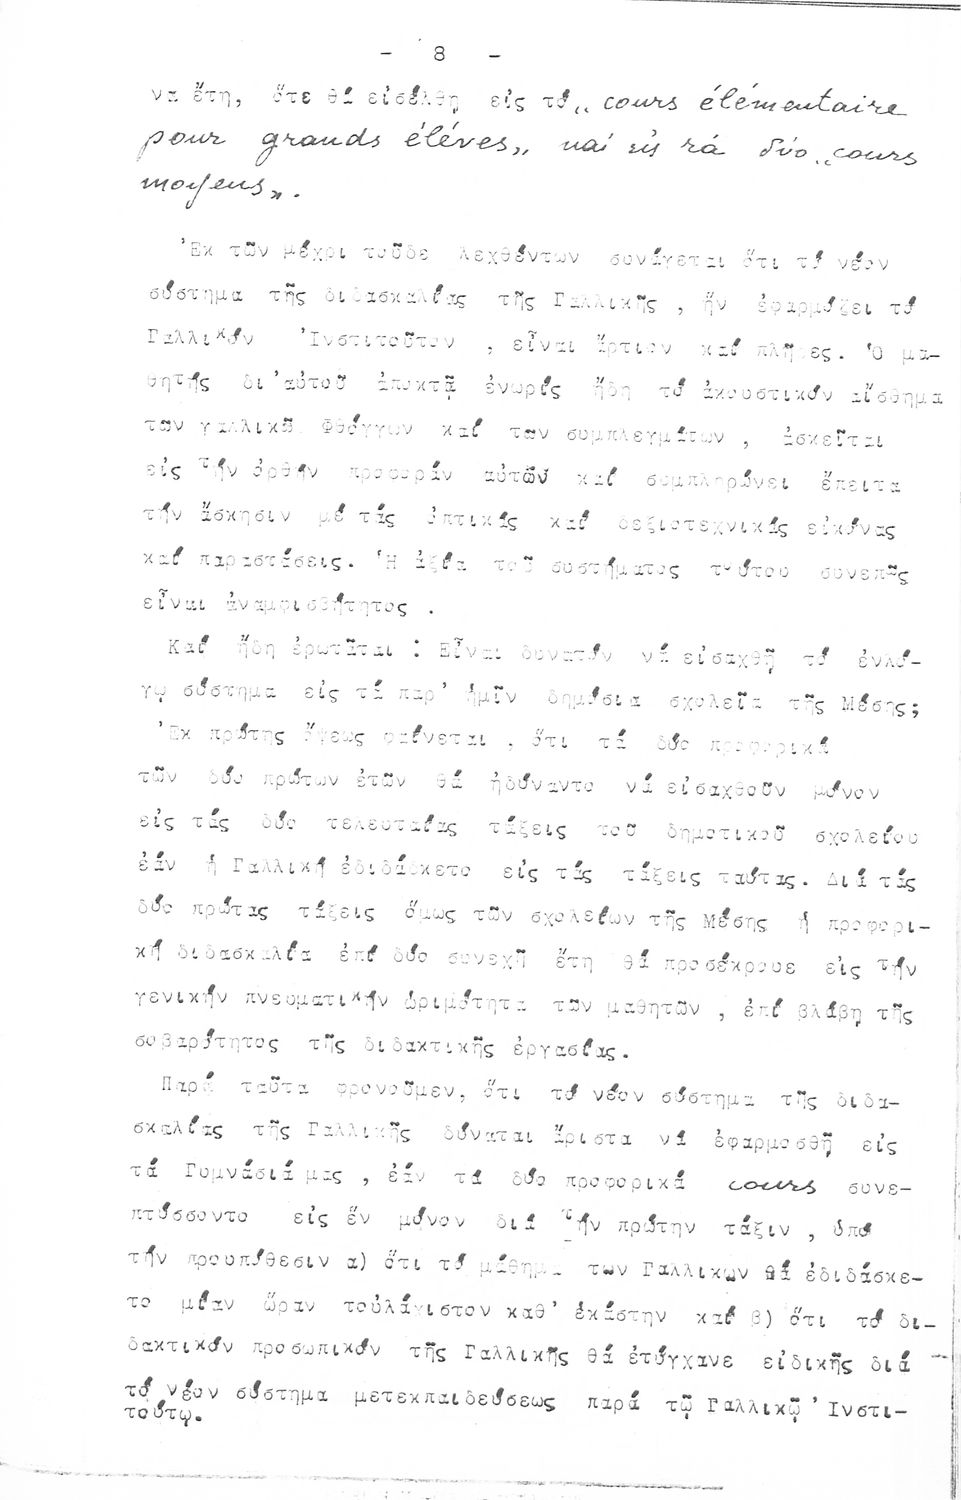 - 8 -
να ἔτη, ὅτε θά εἰσέλθῃ εἰς τό „ cours élémentaire
pour grands éléves„ καί εἰς τά δύο „cours
moyens„.
Ἐκ τῶν μέχρι τοῦδε λεχθέντων συνάγεται ὅτι τό νέον
σύστημα τῆς διδασκαλίας τῆς Γαλλικῆς , ἥν ἐφαρμόζει τό
Γαλλικόν Ἰνστιτοῦτον , εἶναι ἄρτιον καί πλῆρες. Ὁ μα-
θητής δι'αὐτοῦ ἀποκτᾷ ἐνωρίς ἤδη τό ἀκουστικόν αἴσθημα
των γαλλικῶ Φθόγγων καί των συμπλεγμάτων , ἀσκεῖται
εἰς τήν ὀρθήν προφοράν αὐτῶν καί συμπληρώνει ἔπειτα
τήν ἄσκησιν μέ τάς ὀπτικάς καί δεξιοτεχνικάς εἰκόνας
καί παραστάσεις. Ἡ ἀξία τοῦ συστήματος τούτου συνεπῶς
εἶναι ἀναμφισβήτητος .
Καί ἤδη ἐρωτᾶται : Εἶναι δυνατόν νά εἰσαχθῇ τό ἐνλό-
γῳ σύστημα εἰς τά παρ' ἡμῖν δημόσια σχολεῖα τῆς Μέσης;
Ἐκ πρώτης ὄψεως φαίνεται , ὅτι τά δύο προφορικά
τῶν δύο πρώτων ἐτῶν θά ἠδύναντο νά εἰσαχθοῦν μόνον
εἰς τάς δύο τελευταίας τάξεις τοῦ δημοτικοῦ σχολείου
ἐάν ἡ Γαλλική ἐδιδάσκετο εἰς τάς τάξεις ταύτας. Διά τάς
δύο πρώτας τάξεις ὅμως τῶν σχολείων τῆς Μέσης ἡ προφορι-
κή διδασκαλία ἐπί δύο συνεχῆ ἔτη θά προσέκρουε εἰς τήν
γενικήν πνευματικήν ὡριμότητα των μαθητῶν , ἐπί βλάβῃ τῆς
σοβαρότητος τῆς διδακτικῆς ἐργασίας.
Παρά ταῦτα φρονοῦμεν, ὅτι τό νέον σύστημα τῆς διδα-
σκαλίας τῆς Γαλλικῆς δύναται ἄριστα νά ἐφαρμοσθῇ εἰς
τά Γυμνάσιά μας , ἐάν τά δύο προφορικά cours συνε-
πτύσσοντο εἰς ἕν μόνον διά τήν πρώτην τάξιν , ὑπό
τήν προυπόθεσιν α) ὅτι τό μάθημα των Γαλλικων θά ἐδιδάσκε-
το μίαν ὥραν τοὐλάχιστον καθ' ἑκάστην καί β) ὅτι τό δι-
δακτικόν προσωπικόν τῆς Γαλλικῆς θά ἐτύγχανε εἰδικῆς διά
τό νέον σύστημα μετεκπαιδεύσεως παρά τῷ Γαλλικῷ Ἰνστι-
τούτῳ.